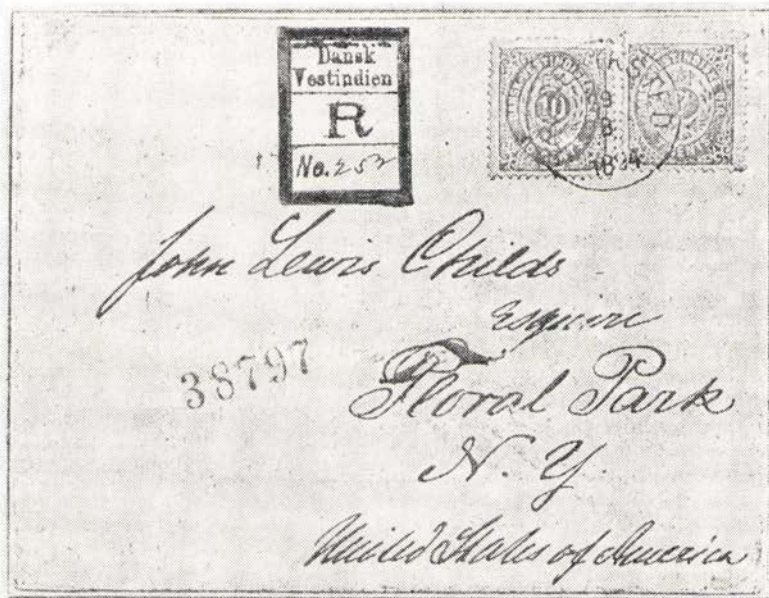 Dansk
Vestindien
R
No. 252
10
9
8
1894
John Lewis Childs
Esquire
38797
Floral Park
N. Y.
United States of America